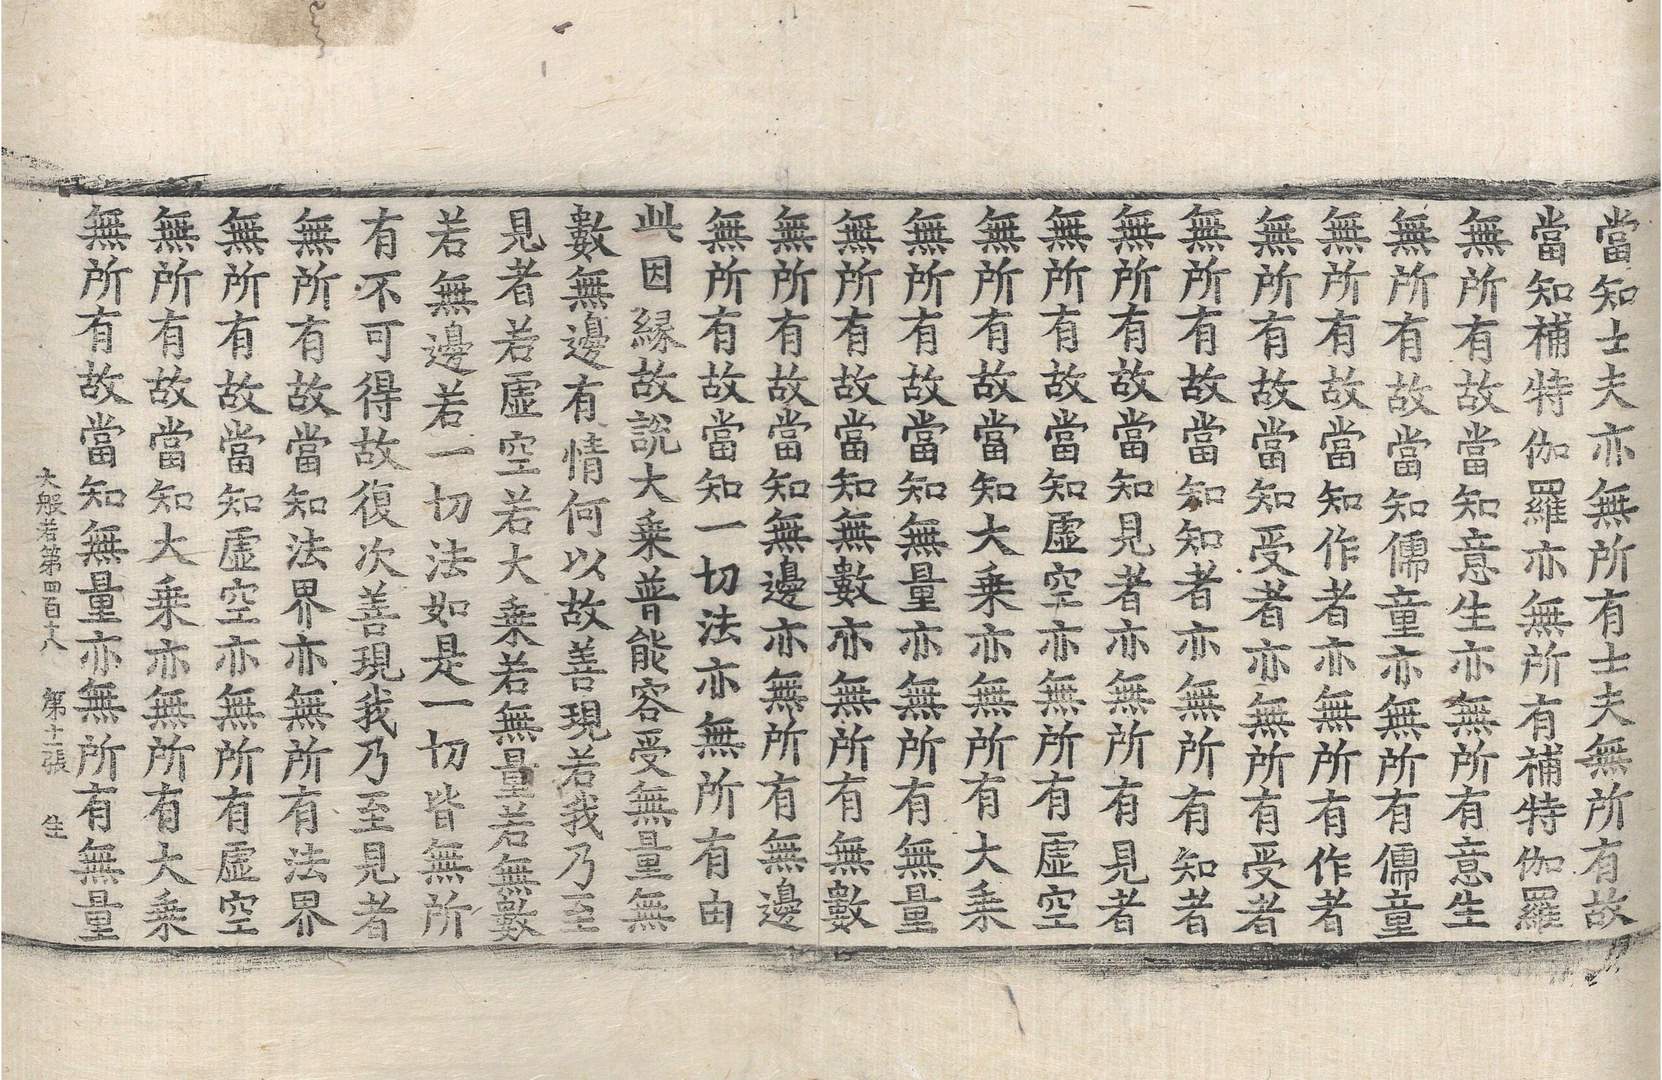 當知士夫亦無所有士夫無所有故
當知補特伽羅亦無所有補特伽羅
無所有故當知意生亦無所有意生
無所有故當知儒童亦無所有儒童
無所有故當知作者亦無所有作者
無所有故當知受者亦無所有受者
無所有故當知知者亦無所有知者
無所有故當知見者亦無所有見者
無所有故當知虛空亦無所有虛空
無所有故當知大乘亦無所有大乘
無所有故當知無量亦無所有無量
無所有故當知無數亦無所有無數
無所有故當知無邊亦無所有無邊
無所有故當知一切法亦無所有由
此因緣故說大乘普能容受無量無
數無邊有情何以故善現若我乃至
見者若虛空若大乘若無量若無數
若無邊若一切法如是一切皆無所
有不可得故復次善現我乃至見者
無所有故當知法界亦無所有法界
無所有故當知虛空亦無所有虛空
無所有故當知大乘亦無所有大乘
無所有故當知無量亦無所有無量
大般若第四百十八 第十二張 生